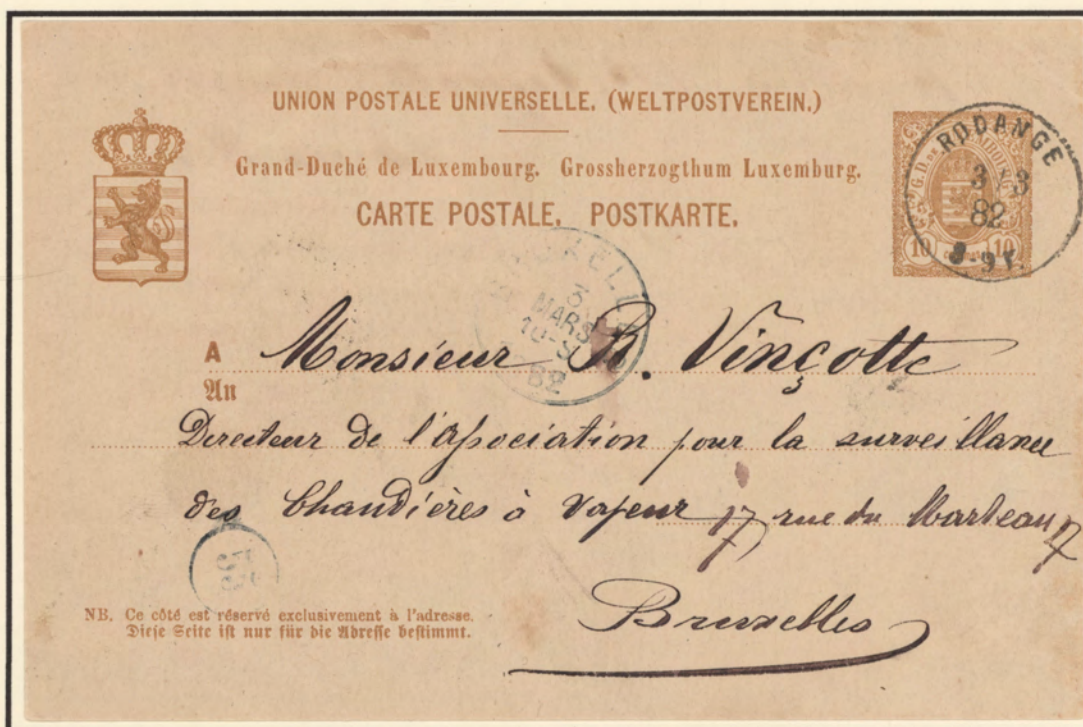 UNION POSTALE UNIVERSELLE. (WELTPOSTVEREIN.)
Grand-Duché de Luxembourg. Grossherzogthum Luxemburg.
CARTE POSTALE. POSTKARTE.
RODANGE
3/3
82
8-9
10 10
BRUXELLES
3
MARS
10-S
82
A
An
Monsieur R. Vinçotte
Directeur de l'Association pour la surveillance
des Chaudières à vapeur 17, rue du Marteau 17
Bruxelles
NB. Ce côté est réservé exclusivement à l'adresse.
Diese Seite ist nur für die Adresse bestimmt.